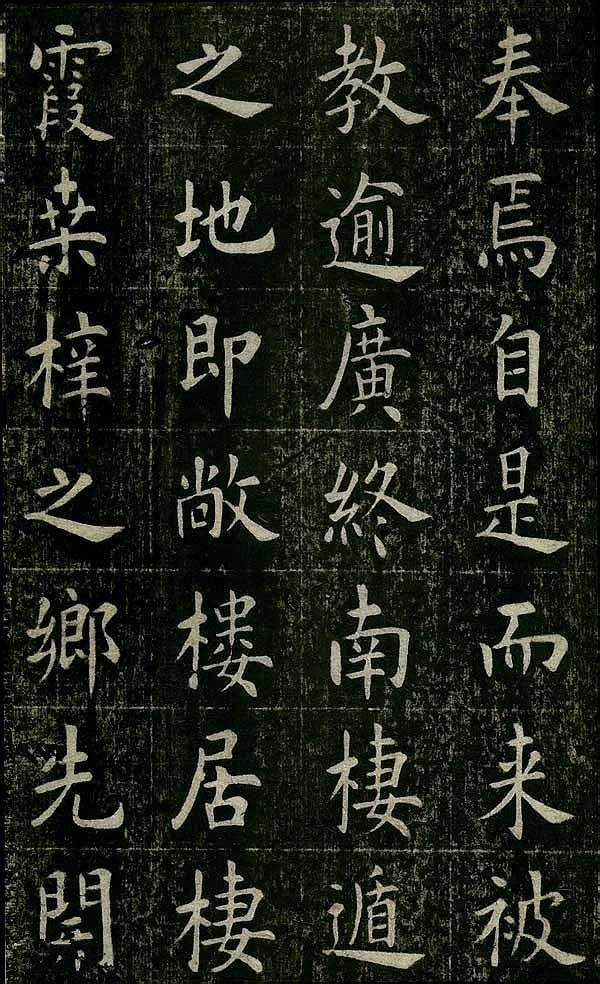 奉焉自是而来被
教逾廣終南棲遁
之地即敞樓居棲
霞桒梓之鄉先